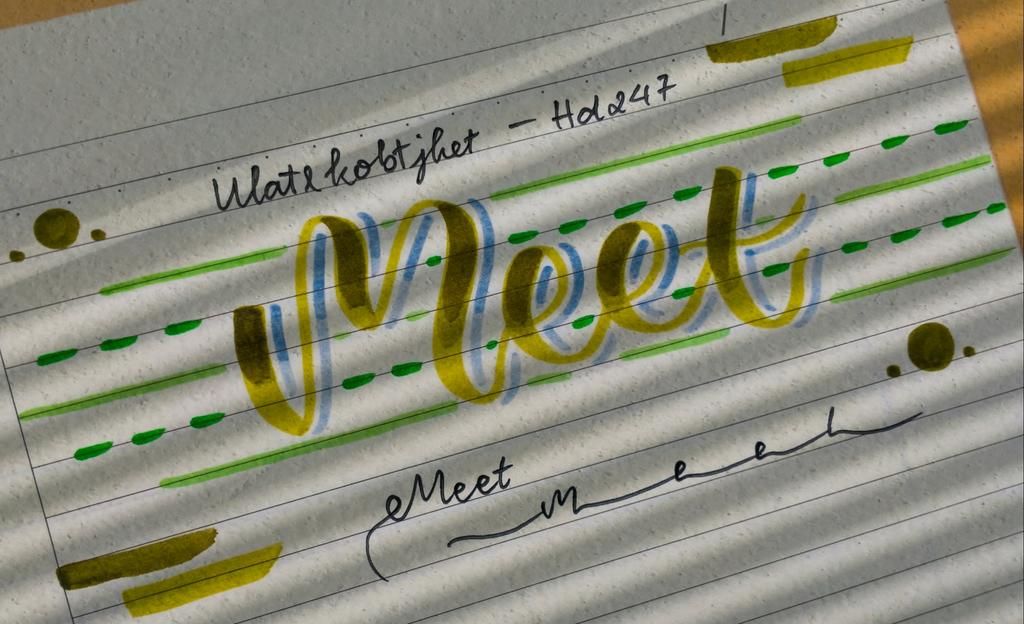 Ulatrkobtjhet - Hd247
Meet
Meet
Meet